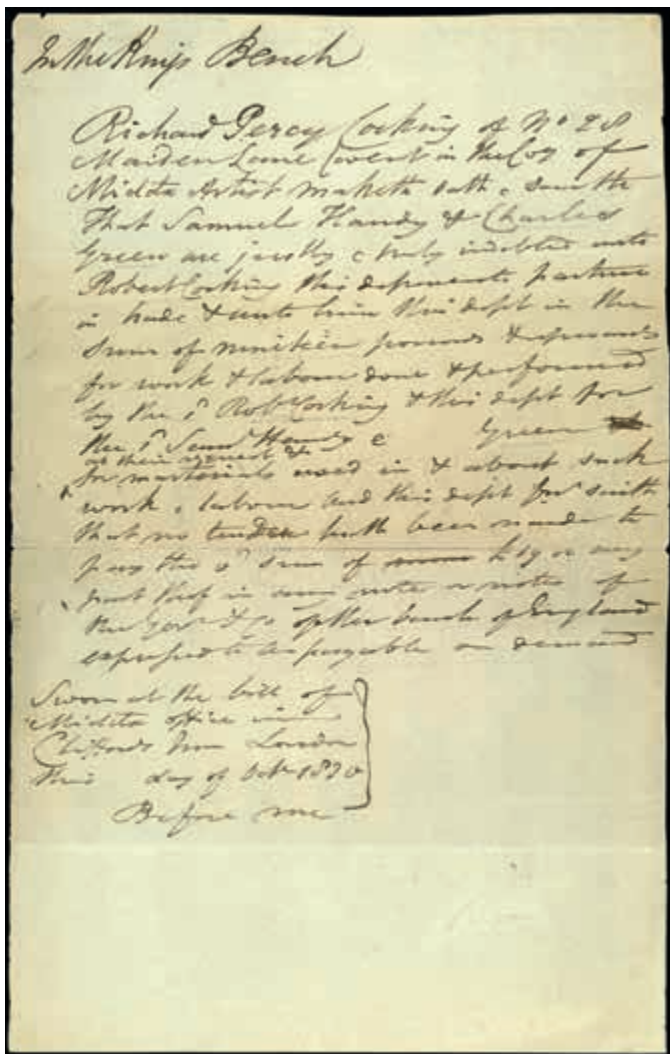 In the Kings Bench
Richard Percy Cocking of No 28
Maiden Lane Covent in the Coy of
Middx Artist maketh oath & saith
That Samuel Handy & Charles
Green are justly & truly indebted unto
Robert Cocking this deponents partner
in trade & unto him this dept in the
sum of nineteen pounds & upwards
for work & labour done & performed
by the sd Robt Cocking & this dept for
the sd Saml Handy & Green
at their request &
for materials used in & about such
work & labour and this dept furr saith
that no tender hath been made to
pay the sd sum of £19 or any
part thof in any note or notes of
the Govr & Co of the bank of England
expressed to be payable on demand
Sworn at the bill of
Middx office in
Cliffords Inn London
this day of Octr 1820
Before me